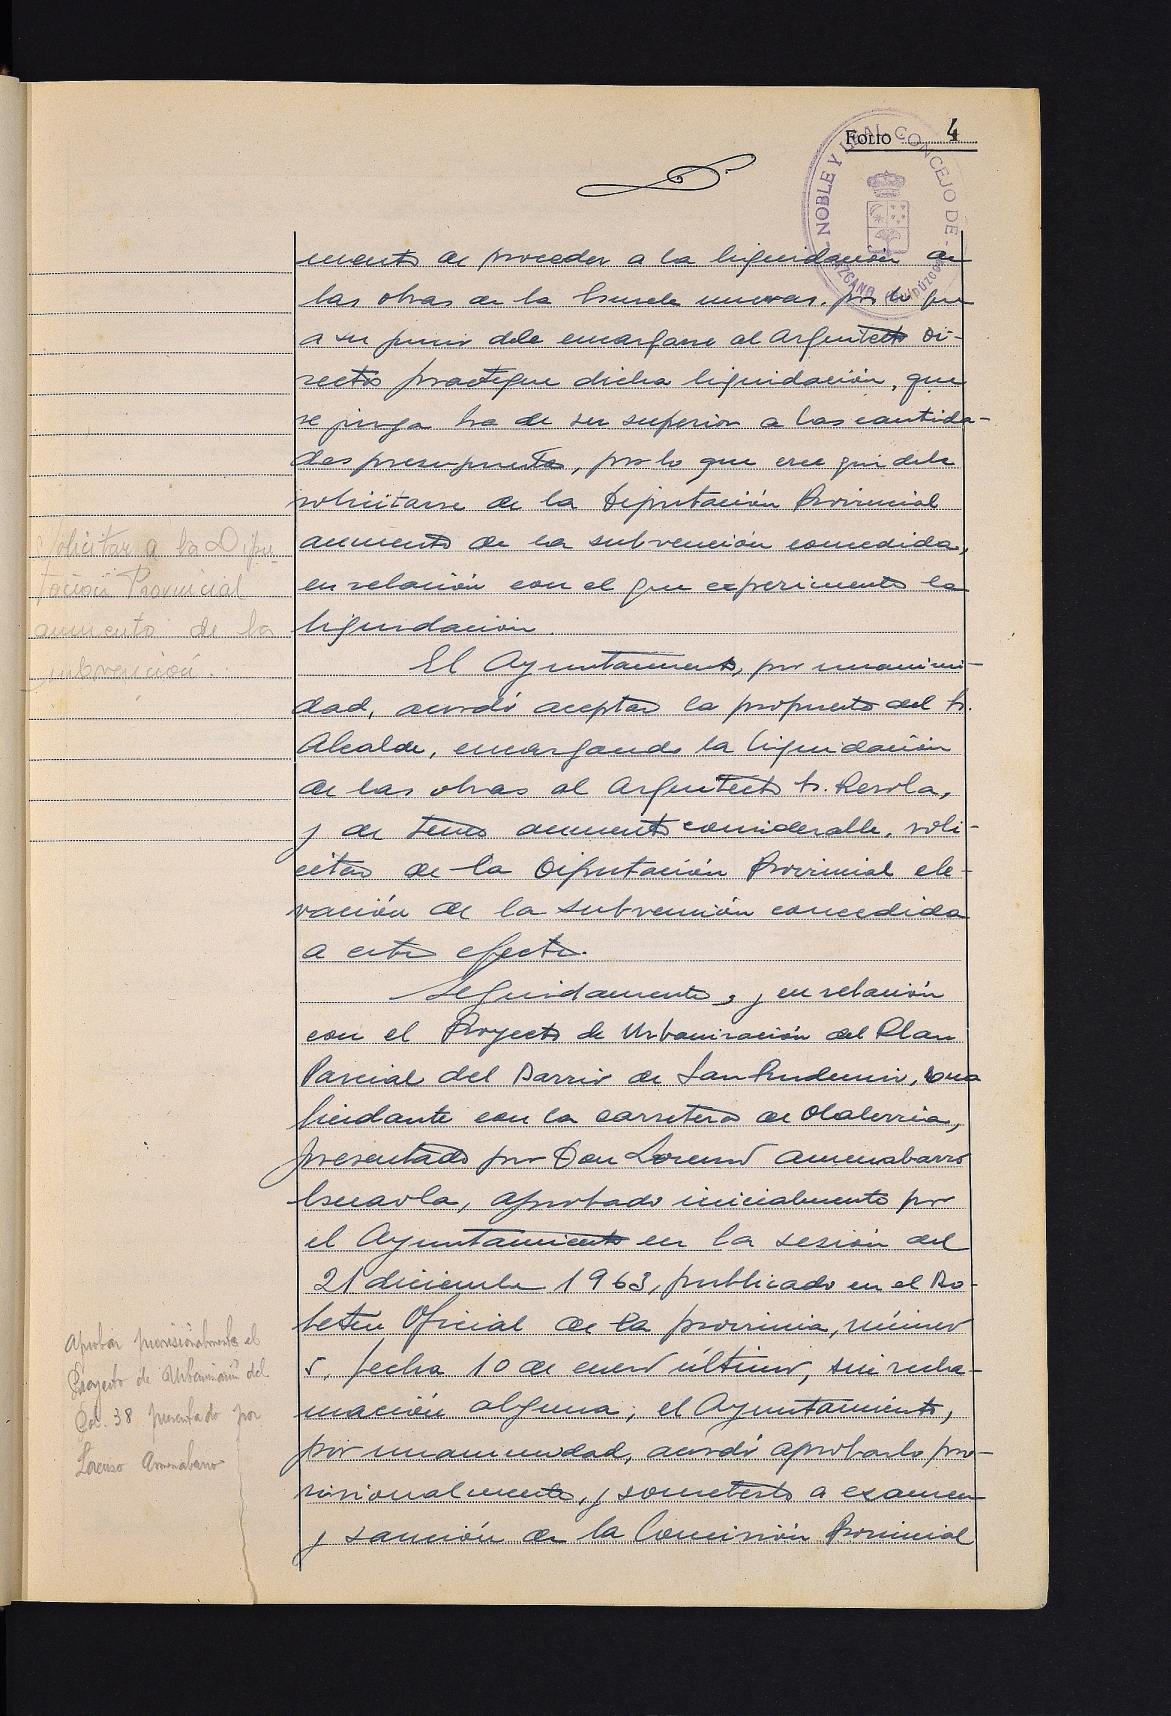 FOLIO 4
NOBLE Y LEAL CONCEJO DE LAZCANO (Guipúzcoa)
mento de proceder a la liquidación de
las obras de la Escuela nuevas, por lo que
a su juicio debe encargarse al Arquitecto Di-
rector practique dicha liquidación, que
se juzga ha de ser superior a las cantida-
des presupuesta, por lo que cree que debe
solicitarse de la Diputación Provincial
aumento de la subvención concedida,
en relación con el que experimente la
liquidación.
Solicitar a la Dipu-
tación Provincial
aumento de la
subvención.
El Ayuntamiento, por unanimi-
dad, acordó aceptar la propuesta del Sr.
Alcalde, encargando la liquidación
de las obras al Arquitecto Sr. Resola,
y de tener aumento considerable, soli-
citar de la Diputación Provincial ele-
vación de la subvención concedida
a este efecto.
Seguidamente, y en relación
con el Proyecto de Urbanización del Plan
Parcial del Barrio de San Prudencio, zona
lindante con la carretera de Olaberria,
presentado por Don Lorenzo Amenabarro
aprobado inicialmente por
el Ayuntamiento en la sesión del
21 diciembre 1963, publicado en el Bo-
letín Oficial de la provincia, número
5, fecha 10 de enero último, sin recla-
mación alguna, el Ayuntamiento,
por unanimidad, acordó aprobarlo pro-
visionalmente, y someterlo a examen
y sanción de la Comisión Provincial
Aprobar provisionalmente el
Proyecto de Urbanización del
38 presentado por
Lorenzo Amenabarro